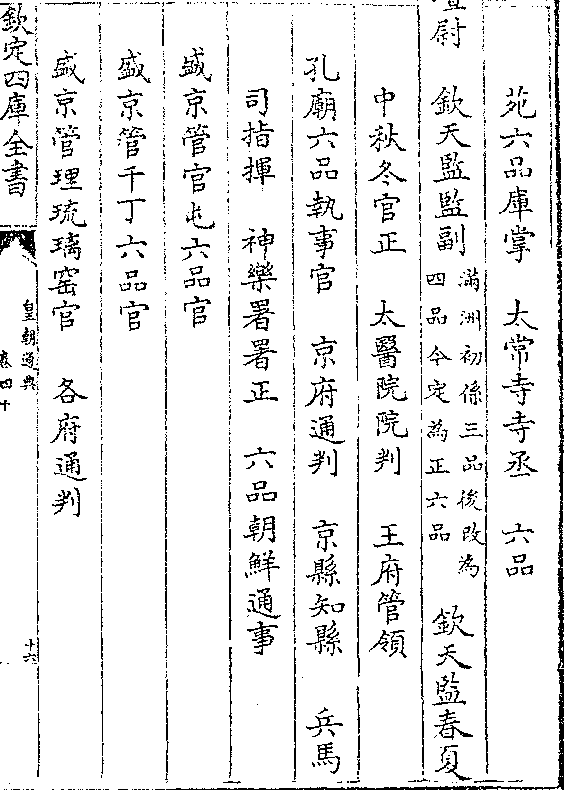 苑六品庫掌　太常寺寺丞　六品
尉　欽天監監副 滿洲初係三品後改為四品今定為正六品　欽天監春夏
中秋冬官正　太醫院院判　王府管領
孔廟六品執事官　京府通判　京縣知縣　兵馬
司指揮　神樂署署正　六品朝鮮通事
盛京管官屯六品官
盛京管千丁六品官
盛京管理琉璃窑官　各府通判
欽定四庫全書
皇朝通典
卷四十
十六